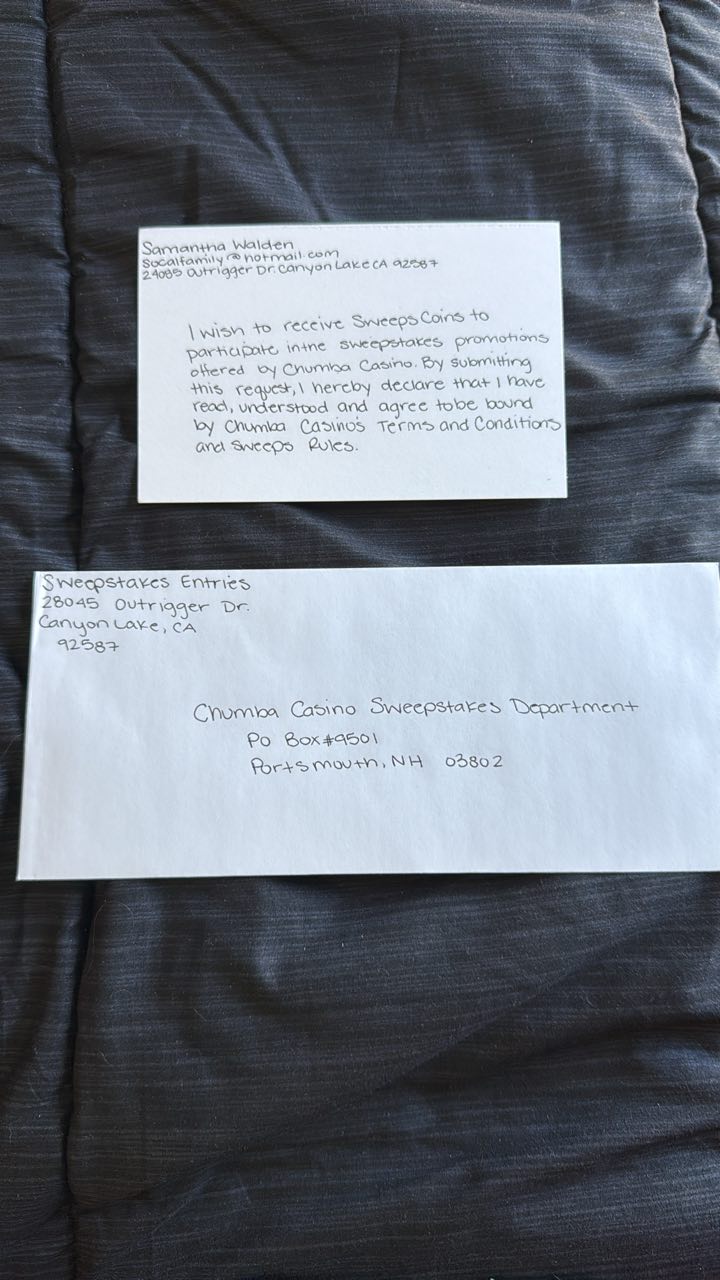 Samantha Walden
socalfamily@hotmail.com
24085 Outrigger Dr. Canyon Lake CA 92587
I wish to receive Sweeps Coins to
participate in the sweepstakes promotions
offered by Chumba Casino. By submitting
this request, I hereby declare that I have
read, understood and agree to be bound
by Chumba Casino's Terms and Conditions
and Sweeps Rules.
Sweepstakes Entries
28045 Outrigger Dr.
Canyon Lake, CA
92587
Chumba Casino Sweepstakes Department
PO Box #9501
Portsmouth, NH 03802